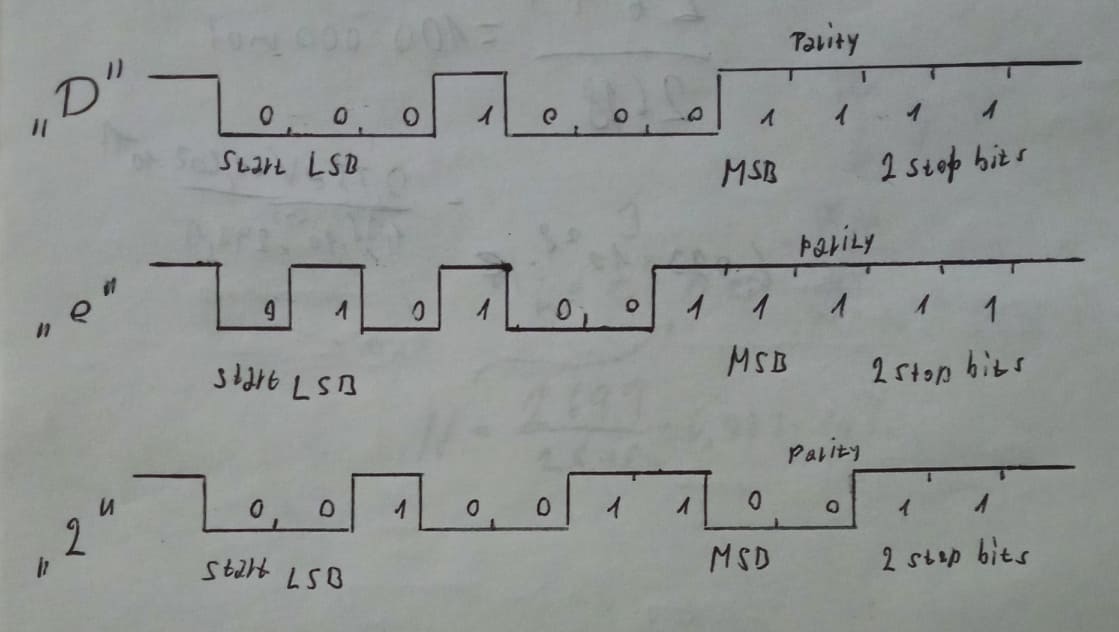 Parity
„D"
0 0 0 1 0 0 0 1 1 1 1
Start LSB MSB 2 stop bits
Parity
„e"
0 1 0 1 0 0 1 1 1 1 1
Start LSB MSB 2 stop bits
Parity
„2"
0 0 1 0 0 1 1 0 0 1 1
Start LSB MSB 2 stop bits